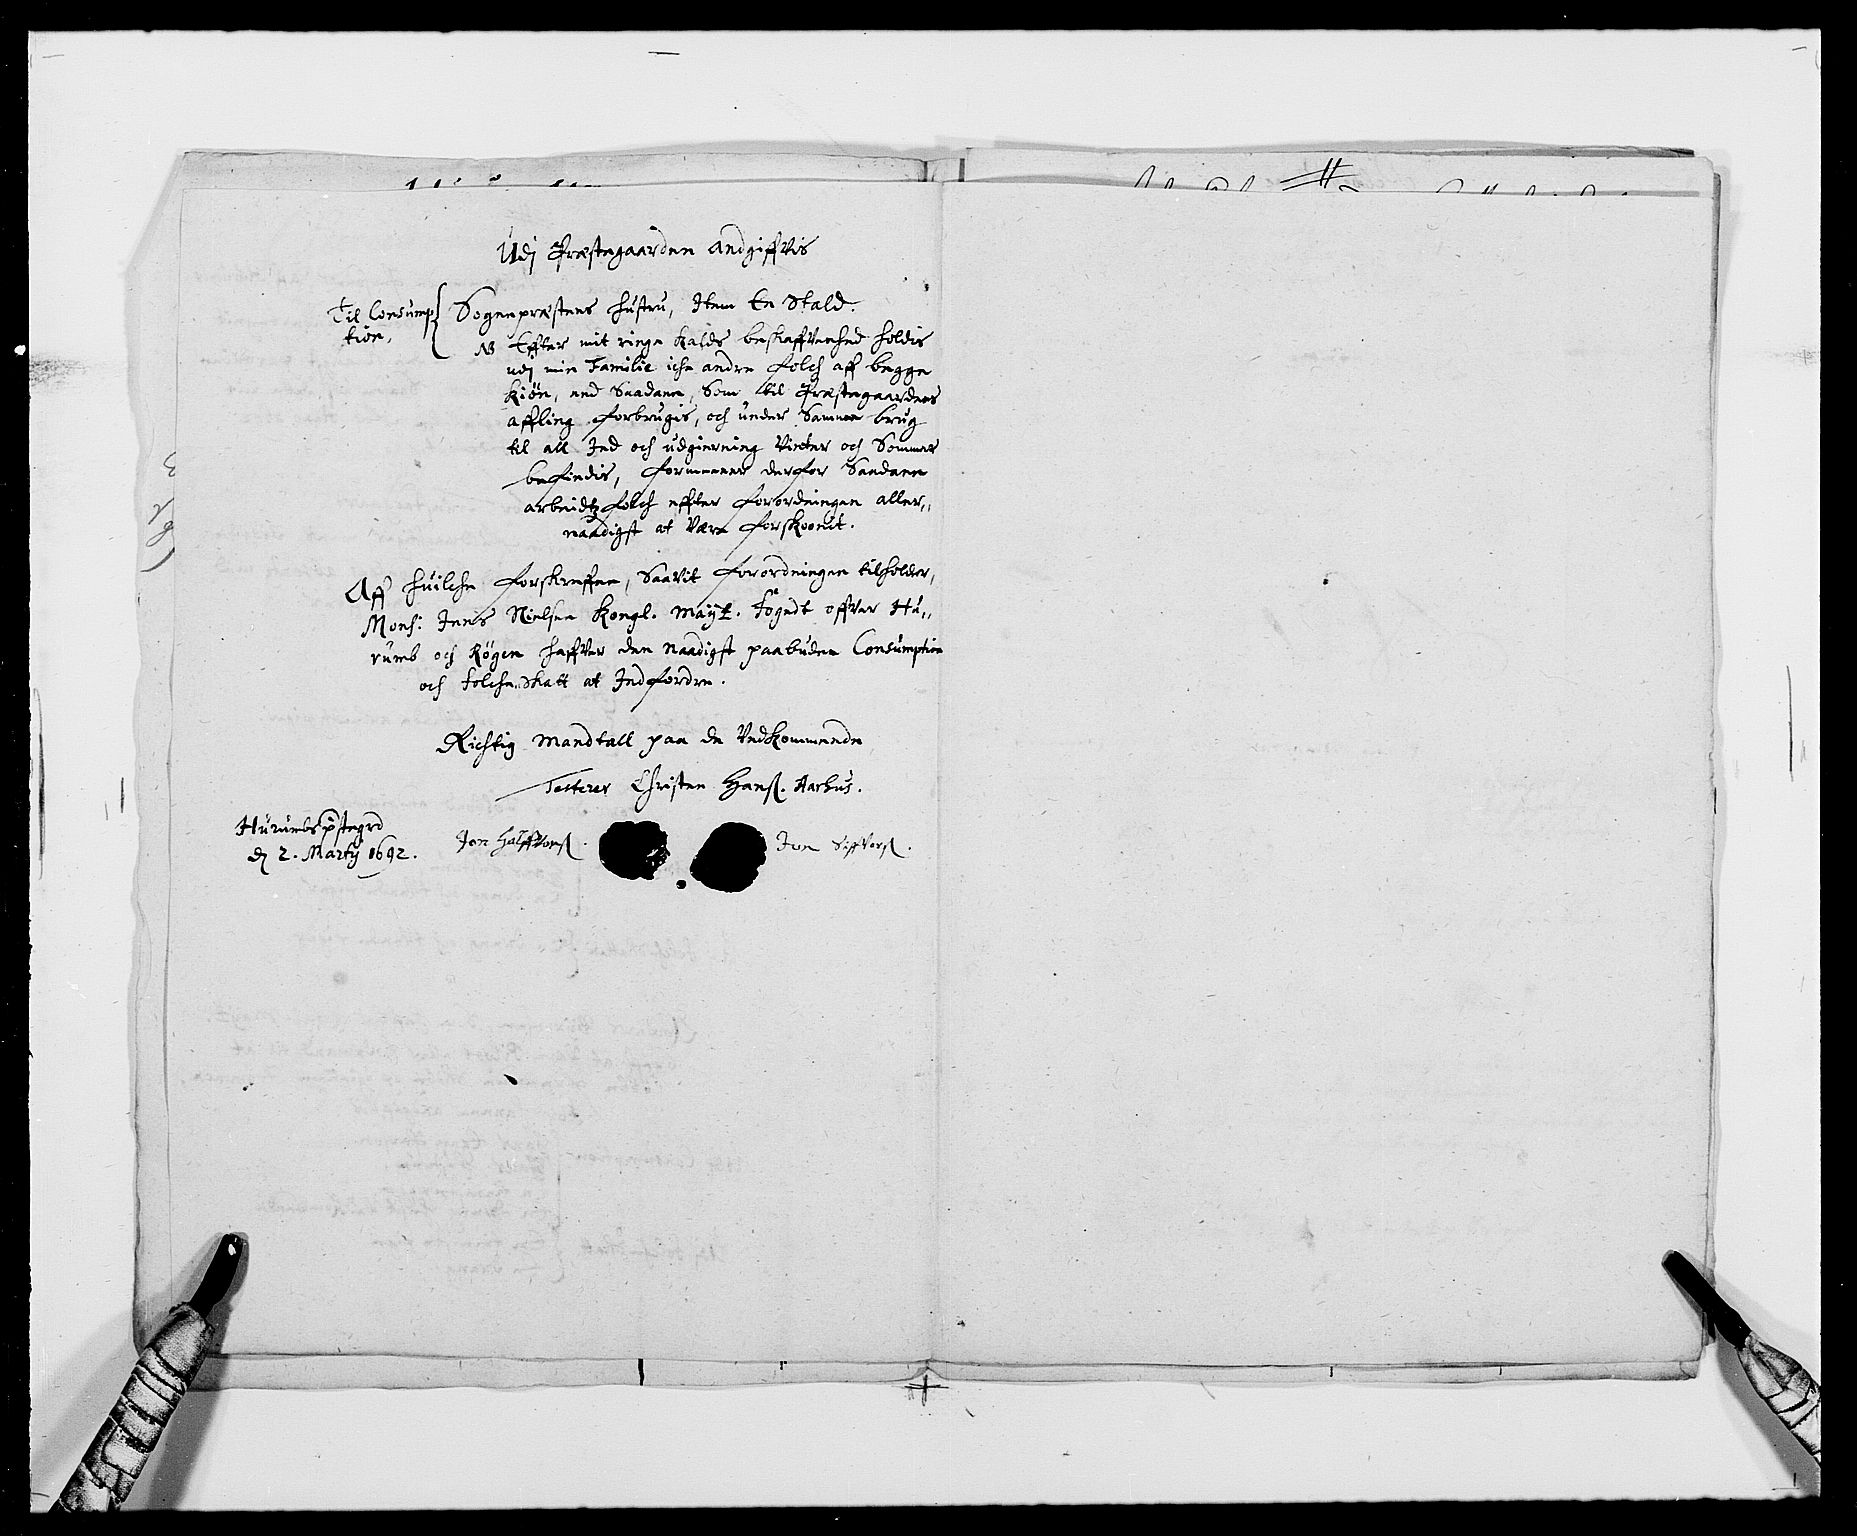 Udj Præstegaarden andgiffvis
Til Consump
tion,
Sognepræstens hustru, Item En Stald.
NB Effter mit ringe Kalds beskaffvenhed holdis
udj min Familie iche andre folch aff begge
Kiøn, end Saadane, Som til Præstegaardens
affling forbrugis, och under Samme brug
til all Ind och udgierning Vinter och Sommer
befindis, formeener derfor Saadane
arbeidtzfolch effter forordningen aller,,
naadigst at Være forskoonit.
Aff huilche forskreffne, Saavit forordningen tilholder,
Mons: Jens Nielsen Kongl. Mayt. Fogedt offver Hu,,
rumb och Røgen haffver den Naadigst paabudne Consumption
och Folche,,Skatt at Indfordre.
Richtig Mandtall paa de Vedkommende
Testerer Christen Hanß. Aarhus.
Hurumbs pstegrd
dj 2. Martij 1692.
Jon Halffvorß.
Jon Siffverß.